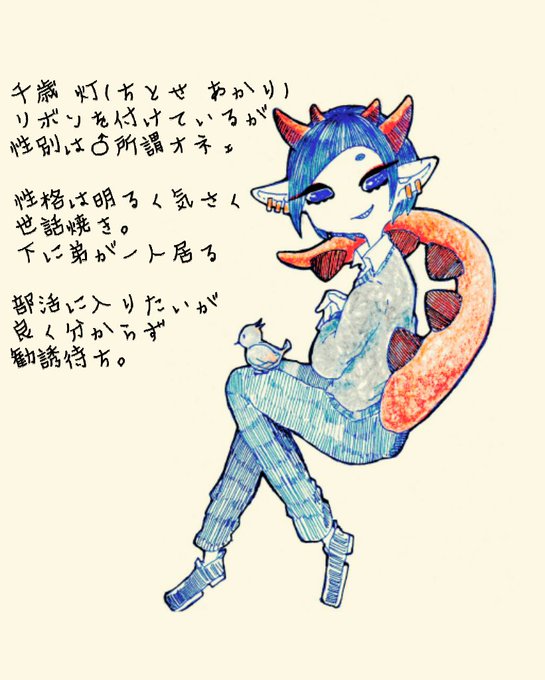 千歳 灯(ちとせ あかり)
リボンを付けているが
性別は♂所謂オネェ
性格は明るく気さく
世話焼き。
下に弟が一人居る
部活に入りたいが
良く分からず
勧誘待ち。